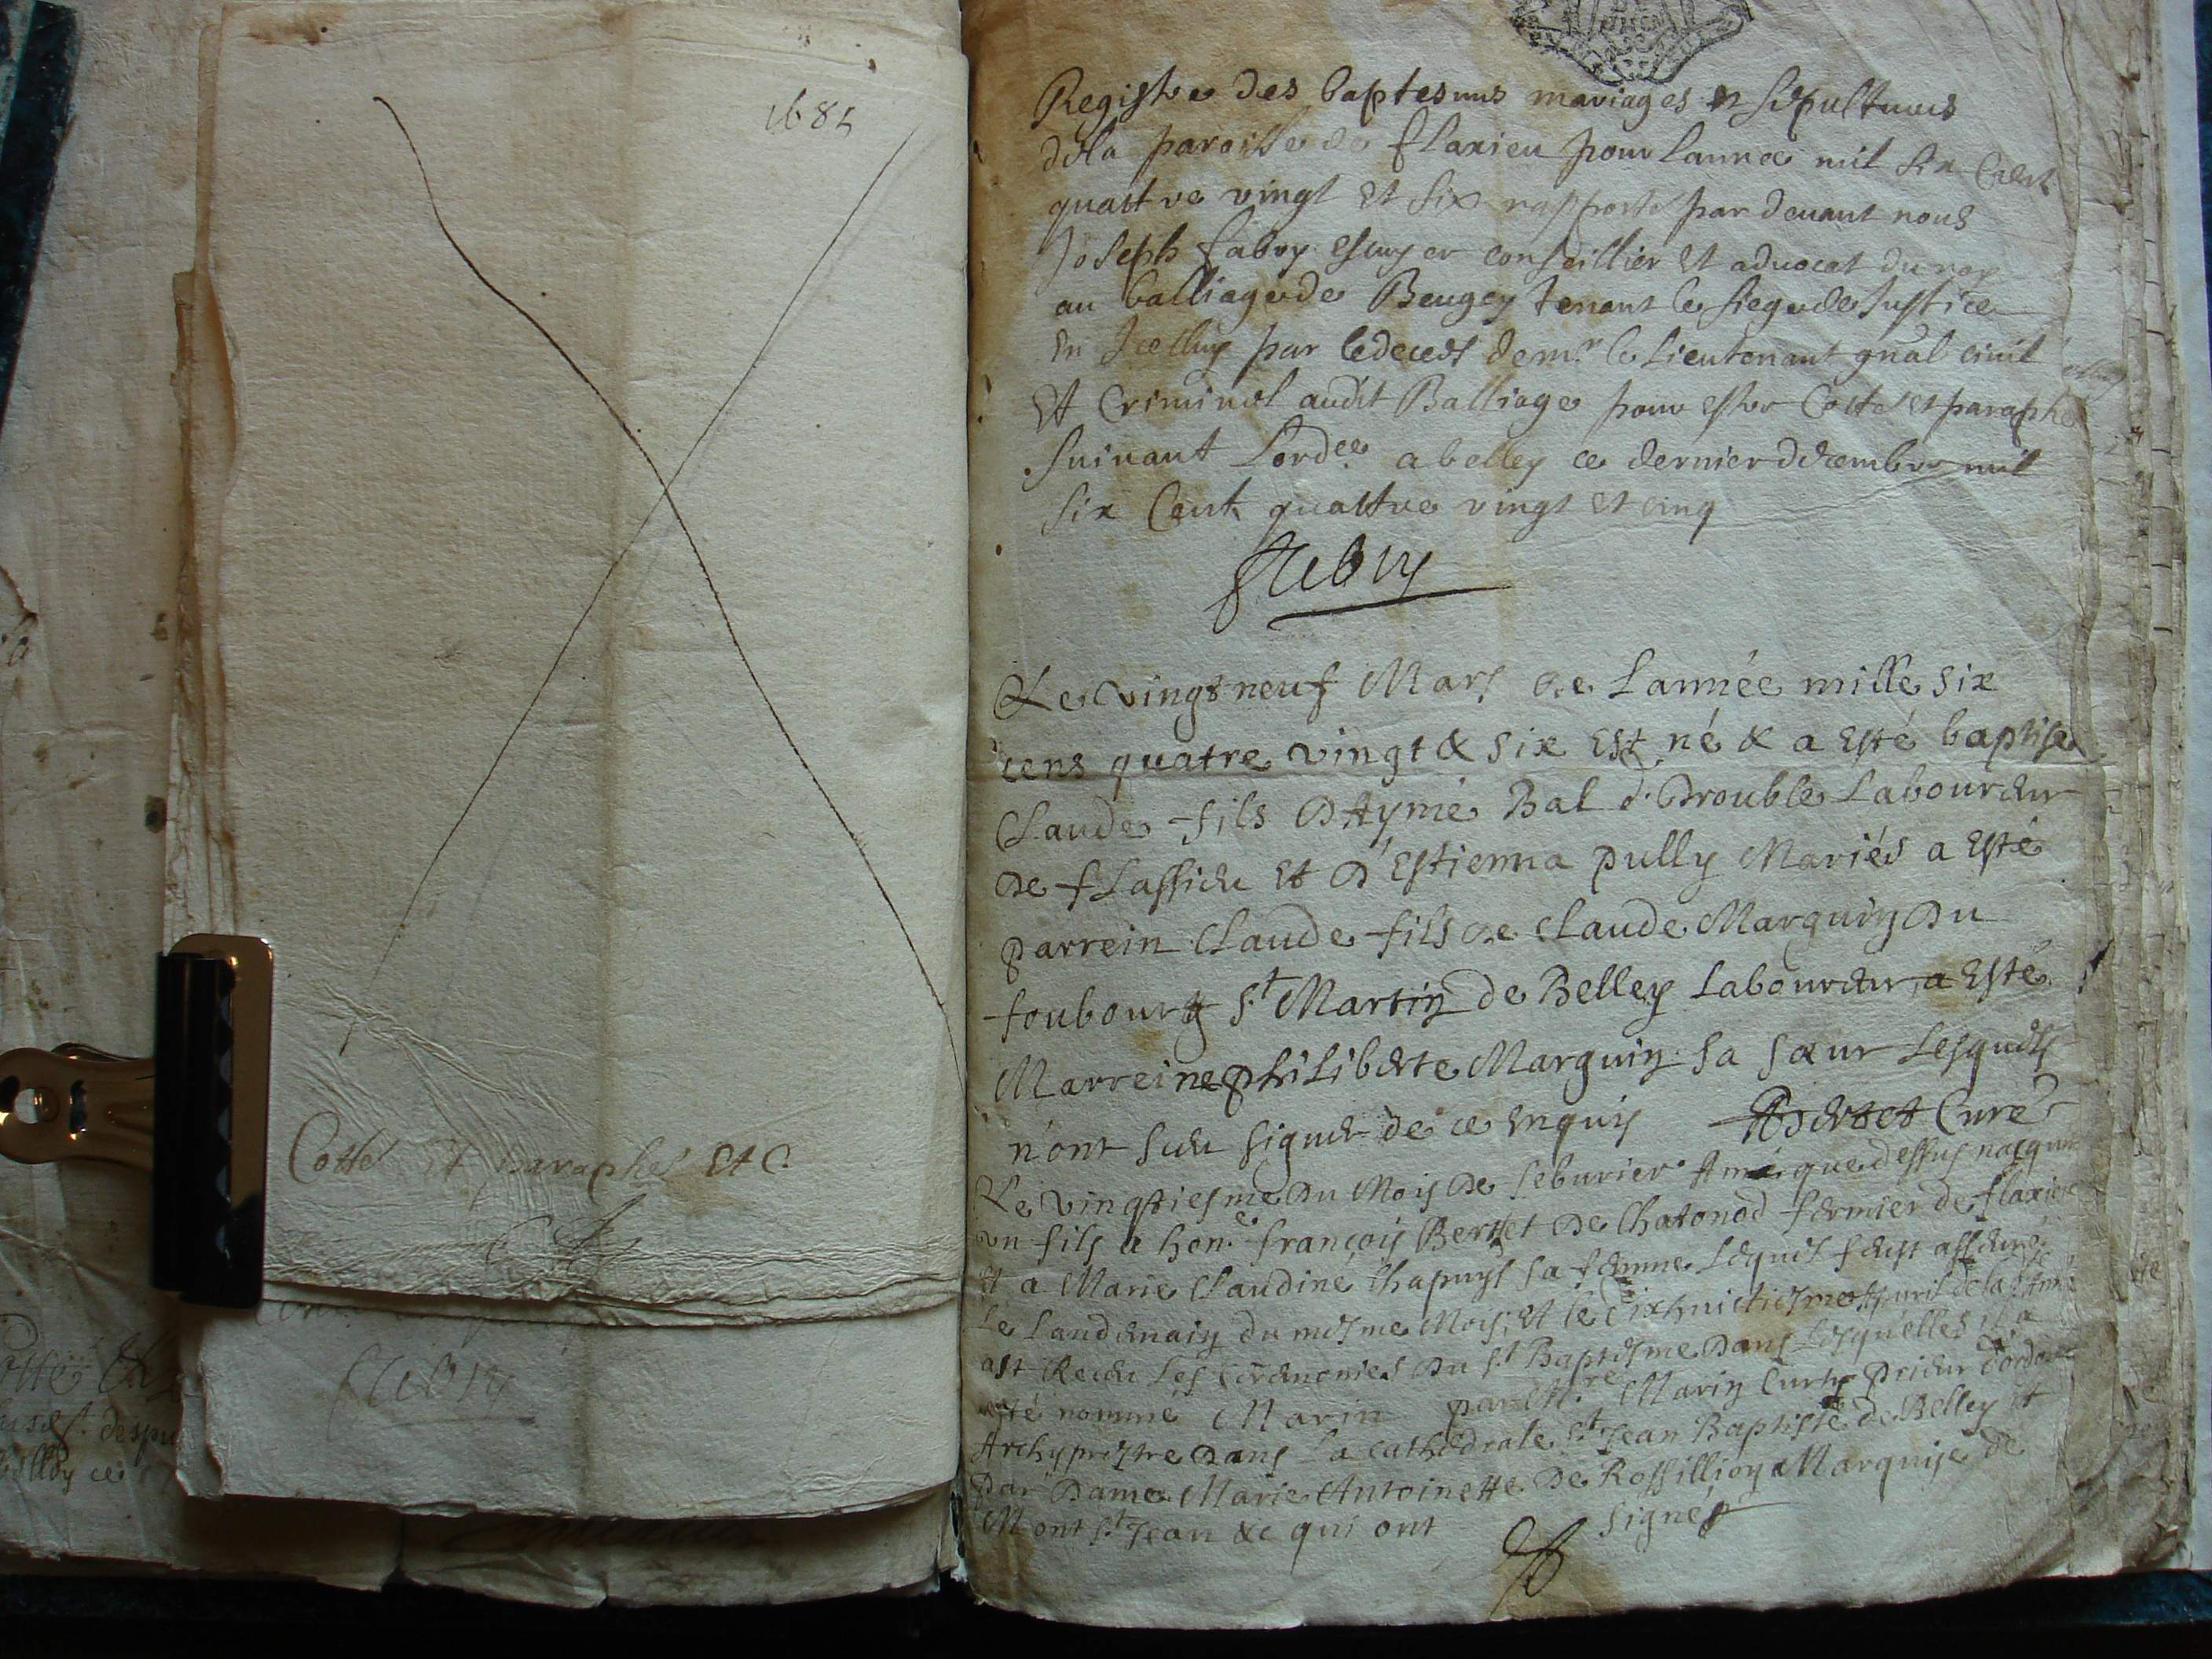 1685
Cotté et paraphé etc
Fabry
Registre des baptesmes mariages et sepultures
de la paroisse de flaxieu pour lannee mil six Cent
quattre vingt et six rapporté par devant nous
Joseph fabry escuyer conseillier et advocat du roy
au balliage de Beugey tenant le siege de Justice
En Jcelluy par le deces de mr. le Lieutenant gnâl civil
Et Criminel audit Balliage pour estre Cotté et paraphé
suivant Lordce. a belley ce dernier decembre mil
six Cent quattre vingt et cinq
Fabry
Le vingt neuf Mars de Lannée mille six
cens quatre vingt & six est né & a esté baptisé
Claude fils D'Aymé Bal d. Drouble Laboureur
De fLassieu et D'Estienna pully Mariés a esté
parrein Claude fils de Claude Marguin Du
foubourg St Martin de Belley Laboureur, a Esté
Marreine philiberte Marguin sa sœur Lesquels
n'ont sceu signer de ce Enquis Bertet Curé
Le vingtiesme Du Mois De feburier Année que dessus nasquit
un fils a hon.e françois Bertet De Chatonod fermier de flaxieu
et a Marie Claudine Chapuys sa femme Lequel feust
Le Landemain du mesme Mois, et le dixhuictiesme Avril de la
ast Receu Les Ceremonies Du St Baptesme Dans Lesquelles il a
esté nommé Marin par Mre. Marin Curty prieur d'ordon
Archyprestre Dans La cathedrale St Jean Baptiste de Belley et
par Dame Marie Antoinette De Rossillion Marquise de
Mont St Jean &c qui ont signés